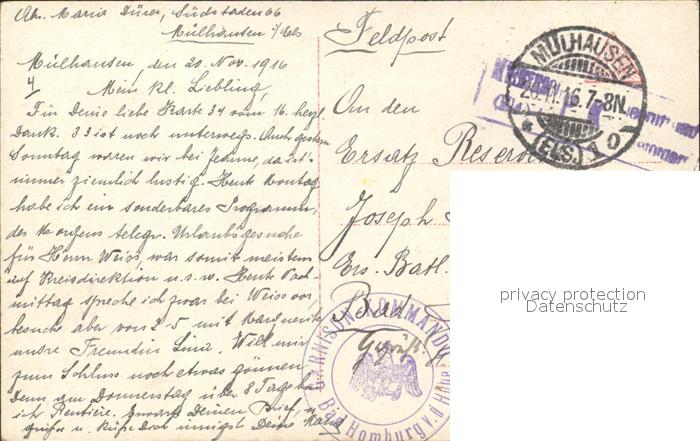 Abs. Maria Dürer, Südstaden 66
Mülhausen i/Els
Mülhausen, den 20. Nov. 1916
4
Mein kl. Liebling,
Für Deine liebe Karte 34 vom 16. herzl
Dank. 33 ist noch unterwegs. Auch gestern
Sonntag waren wir bei Jeanne, da ist's
immer ziemlich lustig. Heute Montag
habe ich ein sonderbares Programm,
des Morgens telegr. Urlaubsgesuche
für Herrn Weiss, war somit meistens
auf Kreisdirektion u.s.w. Heute Nach
mittag spreche ich zwar bei Weiss vor
besuche aber von 2-5 mit Marguerite
unsre Freundin Lina. Will mir
zum Schluss noch etwas gönnen
Denn am Donnerstag über 8 Tage bin
ich Rentière. Erwarte Deinen Brief, u.
grüße u. küße Dich innigst Deine
Feldpost
An den
Ersatz Reserv
Joseph
Ers. Batl.
Bad
Geprüft.
MÜLHAUSEN
20.11.16.7-8N.
(ELS.)
* 1 0
GARNISON-KOMMANDO
Bad Homburg v.d. Höhe
privacy protection
Datenschutz